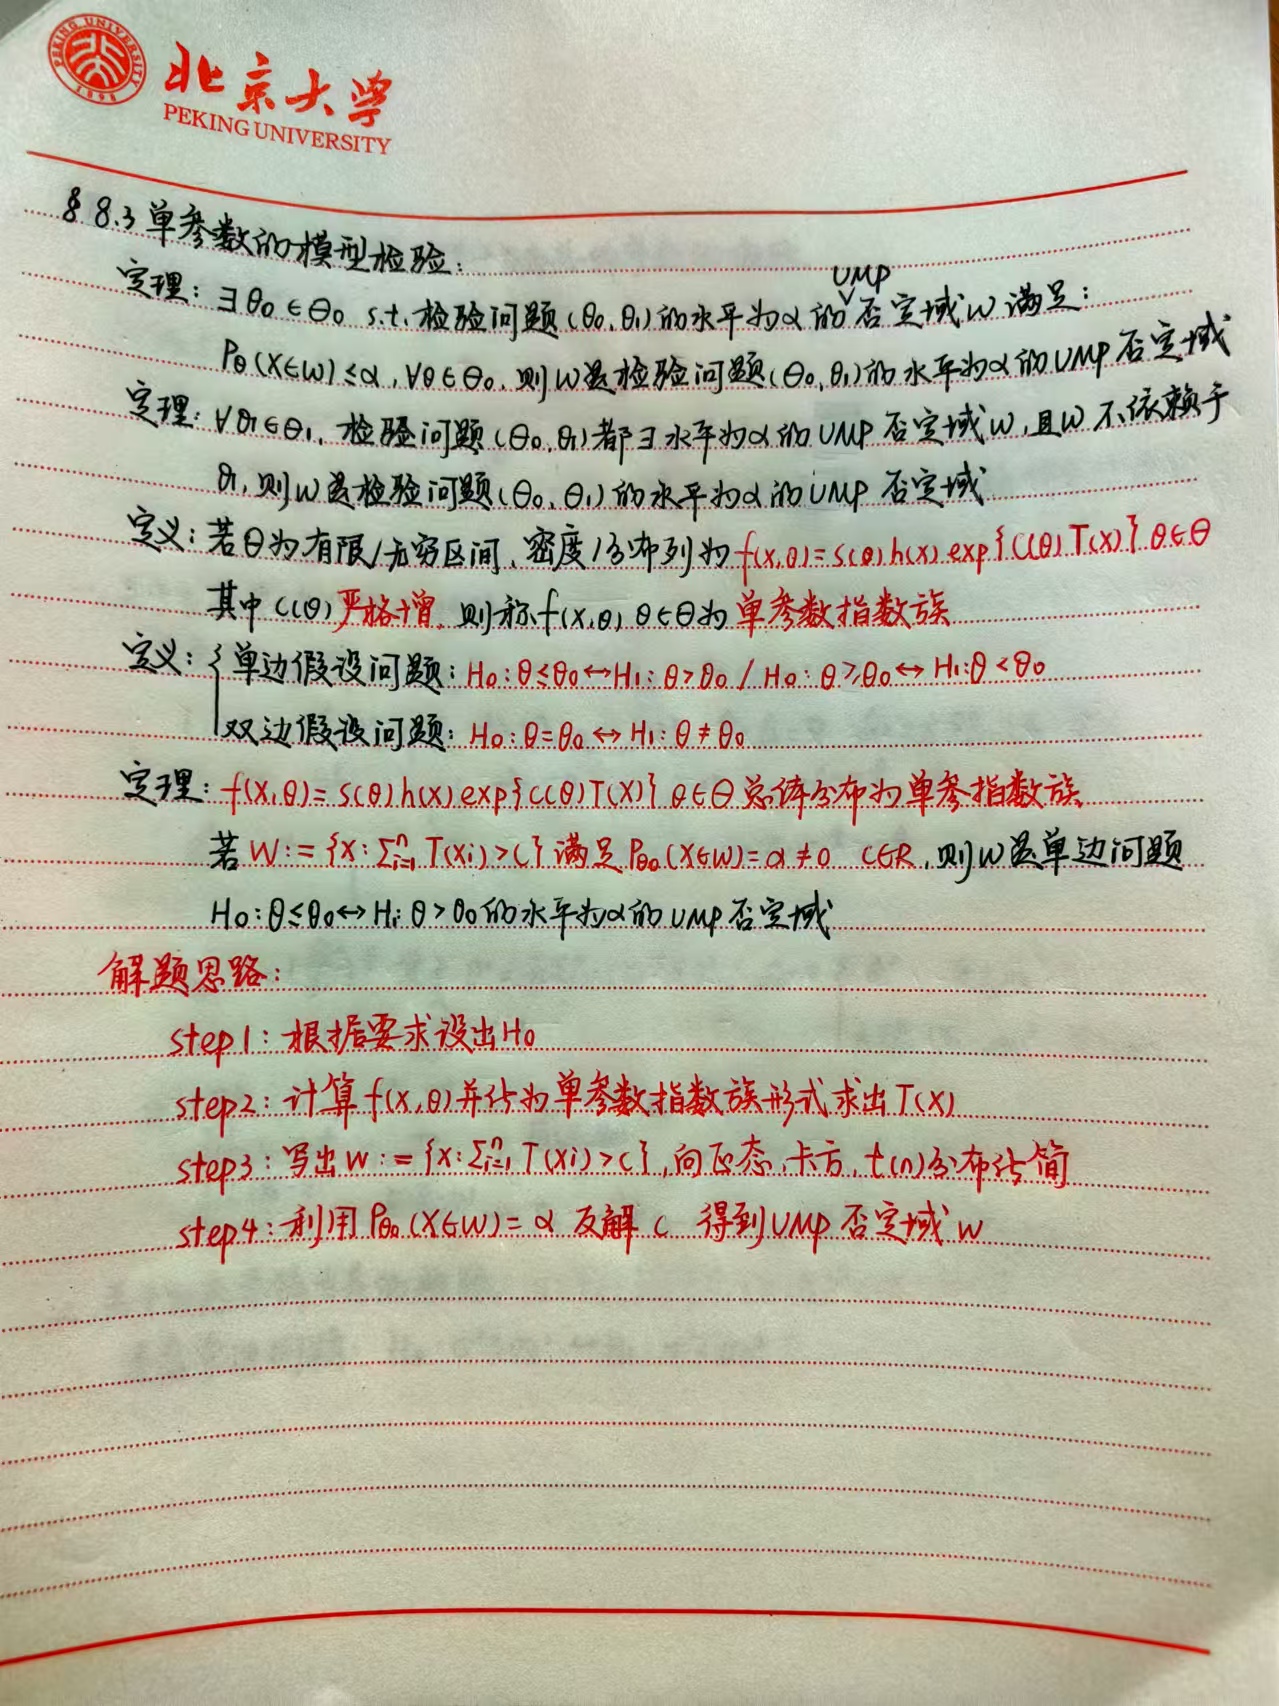 PEKING UNIVERSITY
1898
北京大学
PEKING UNIVERSITY
§ 8.3 单参数的模型检验:
定理: ∃θ₀∈Θ₀ s.t. 检验问题(θ₀, Θ₁)的水平为α的UMP否定域W满足:
Pθ(X∈W)≤α, ∀θ∈Θ₀, 则W是检验问题(Θ₀, Θ₁)的水平为α的UMP否定域
定理: ∀θ₁∈Θ₁, 检验问题(Θ₀, θ₁)都∃水平为α的UMP否定域W, 且W不依赖于
θ₁, 则W是检验问题(Θ₀, Θ₁)的水平为α的UMP否定域
定义: 若Θ为有限/无穷区间, 密度/分布列为 f(x,θ)=s(θ)h(x)exp{C(θ)T(x)} θ∈Θ
其中C(θ)严格增, 则称f(x,θ), θ∈Θ为单参数指数族
定义: { 单边假设问题: H₀: θ≤θ₀↔H₁: θ>θ₀ / H₀: θ≥θ₀↔H₁: θ<θ₀
双边假设问题: H₀: θ=θ₀↔H₁: θ≠θ₀
定理: f(x,θ)=s(θ)h(x)exp{C(θ)T(x)} θ∈Θ 总体分布为单参指数族
若W:={x: Σᵢ₌₁ⁿ T(xᵢ)>C}满足Pθ₀(X∈W)=α≠0 C∈R, 则W是单边问题
H₀: θ≤θ₀↔H₁: θ>θ₀的水平为α的UMP否定域
解题思路:
step1: 根据要求设出H₀
step2: 计算f(x,θ)并化为单参数指数族形式求出T(x)
step3: 写出W:={x: Σᵢ₌₁ⁿ T(xᵢ)>C}, 向正态, 卡方, t(n)分布化简
step4: 利用Pθ₀(X∈W)=α 反解C 得到UMP否定域W